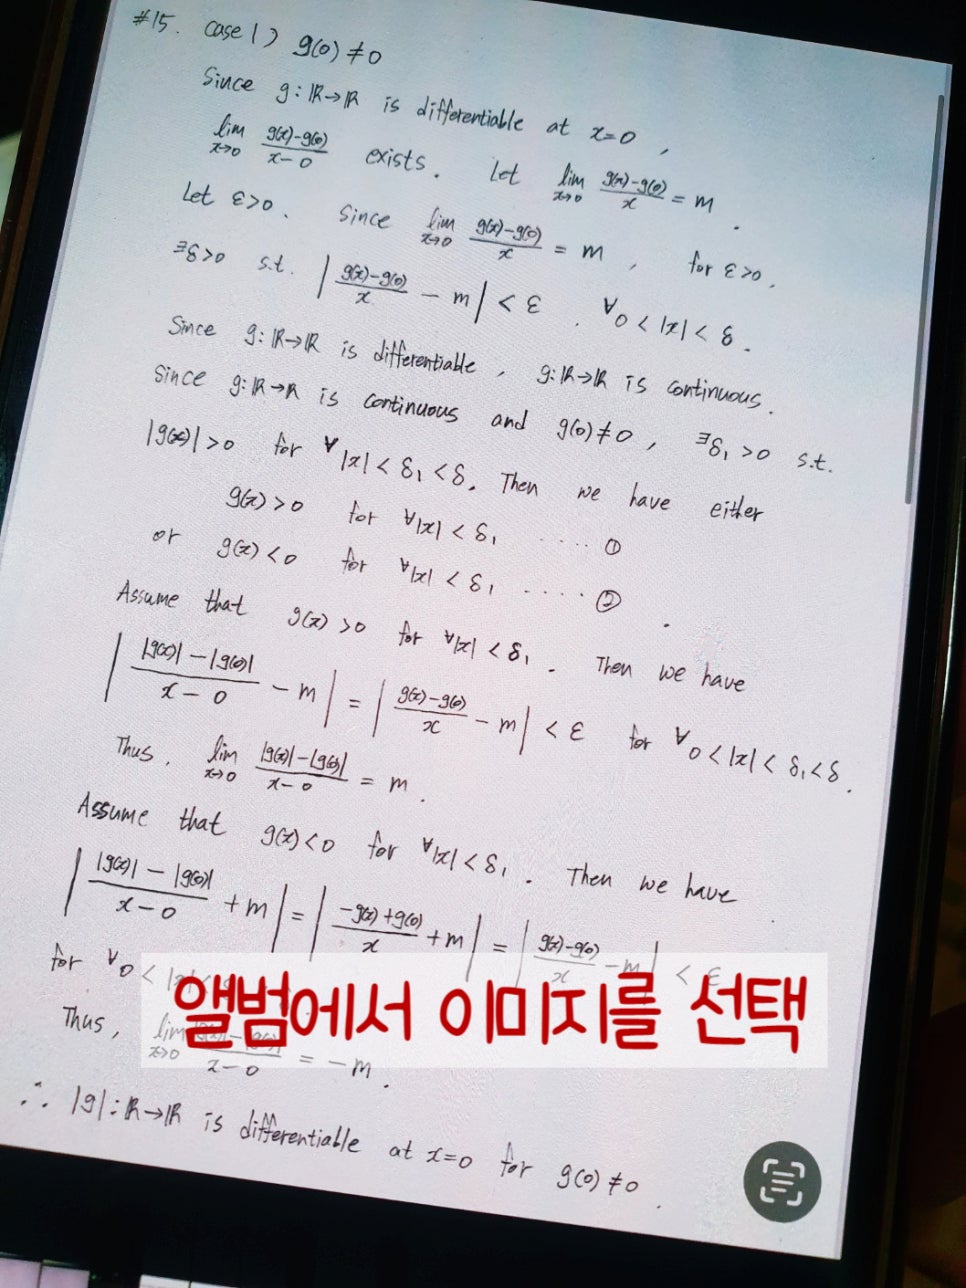 #15. case 1) g(0) ≠ 0
Since g : ℝ→ℝ is differentiable at x=0 ,
lim x→0 g(x)-g(0) / x-0 exists. Let lim x→0 g(x)-g(0) / x = m .
Let ε>0. Since lim x→0 g(x)-g(0) / x = m , for ε>0,
∃δ>0 s.t. | g(x)-g(0) / x - m | < ε , ∀0<|x|<δ .
Since g: ℝ→ℝ is differentiable , g: ℝ→ℝ is continuous.
Since g: ℝ→ℝ is continuous and g(0)≠0 , ∃δ₁ >0 s.t.
|g(x)|>0 for ∀|x|<δ₁<δ. Then we have either
g(x)>0 for ∀|x|<δ₁ .... ①
or g(x)<0 for ∀|x|<δ₁ .... ② .
Assume that g(x)>0 for ∀|x|<δ₁ . Then we have
| |g(x)|-|g(0)| / x-0 - m | = | g(x)-g(0) / x - m | < ε for ∀0<|x|<δ₁<δ .
Thus, lim x→0 |g(x)|-|g(0)| / x-0 = m .
Assume that g(x)<0 for ∀|x|<δ₁ . Then we have
| |g(x)|-|g(0)| / x-0 + m | = | -g(x)+g(0) / x + m | = | g(x)-g(0) / x - m | < ε
for ∀0<
앨범에서 이미지를 선택
Thus, lim x→0 / x-0 = -m .
∴ |g| : ℝ→ℝ is differentiable at x=0 for g(0)≠0 .